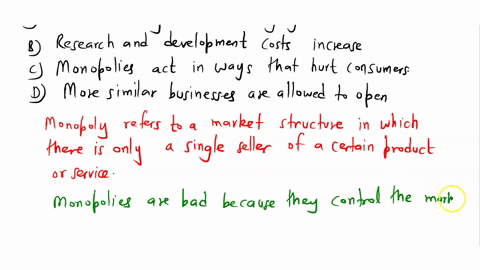 B) Research and development costs increase
C) Monopolies act in ways that hurt consumers.
D) More similar businesses are allowed to open
Monopoly refers to a market structure in which
there is only a single seller of a certain product
or service.
Monopolies are bad because they control the mark